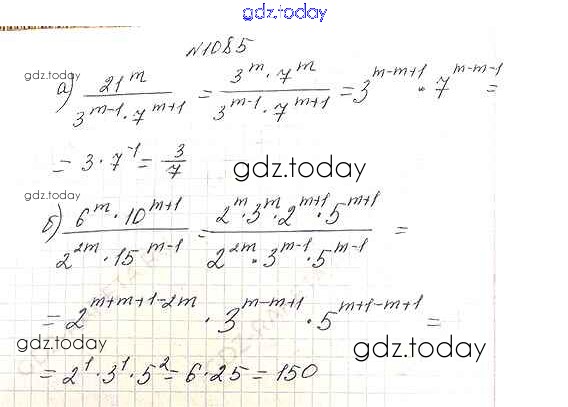 gdz.today
№1085
gdz.today
а) 21^m / (3^(m-1) · 7^(m+1)) = (3^m · 7^m) / (3^(m-1) · 7^(m+1)) = 3^(m-m+1) · 7^(m-m-1) =
= 3 · 7^(-1) = 3/7
gdz.today
gdz.today
б) (6^m · 10^(m+1)) / (2^(2m) · 15^(m-1)) = (2^m · 3^m · 2^(m+1) · 5^(m+1)) / (2^(2m) · 3^(m-1) · 5^(m-1)) =
= 2^(m+m+1-2m) · 3^(m-m+1) · 5^(m+1-m+1) =
gdz.today
gdz.today
= 2^1 · 3^1 · 5^2 = 6 · 25 = 150